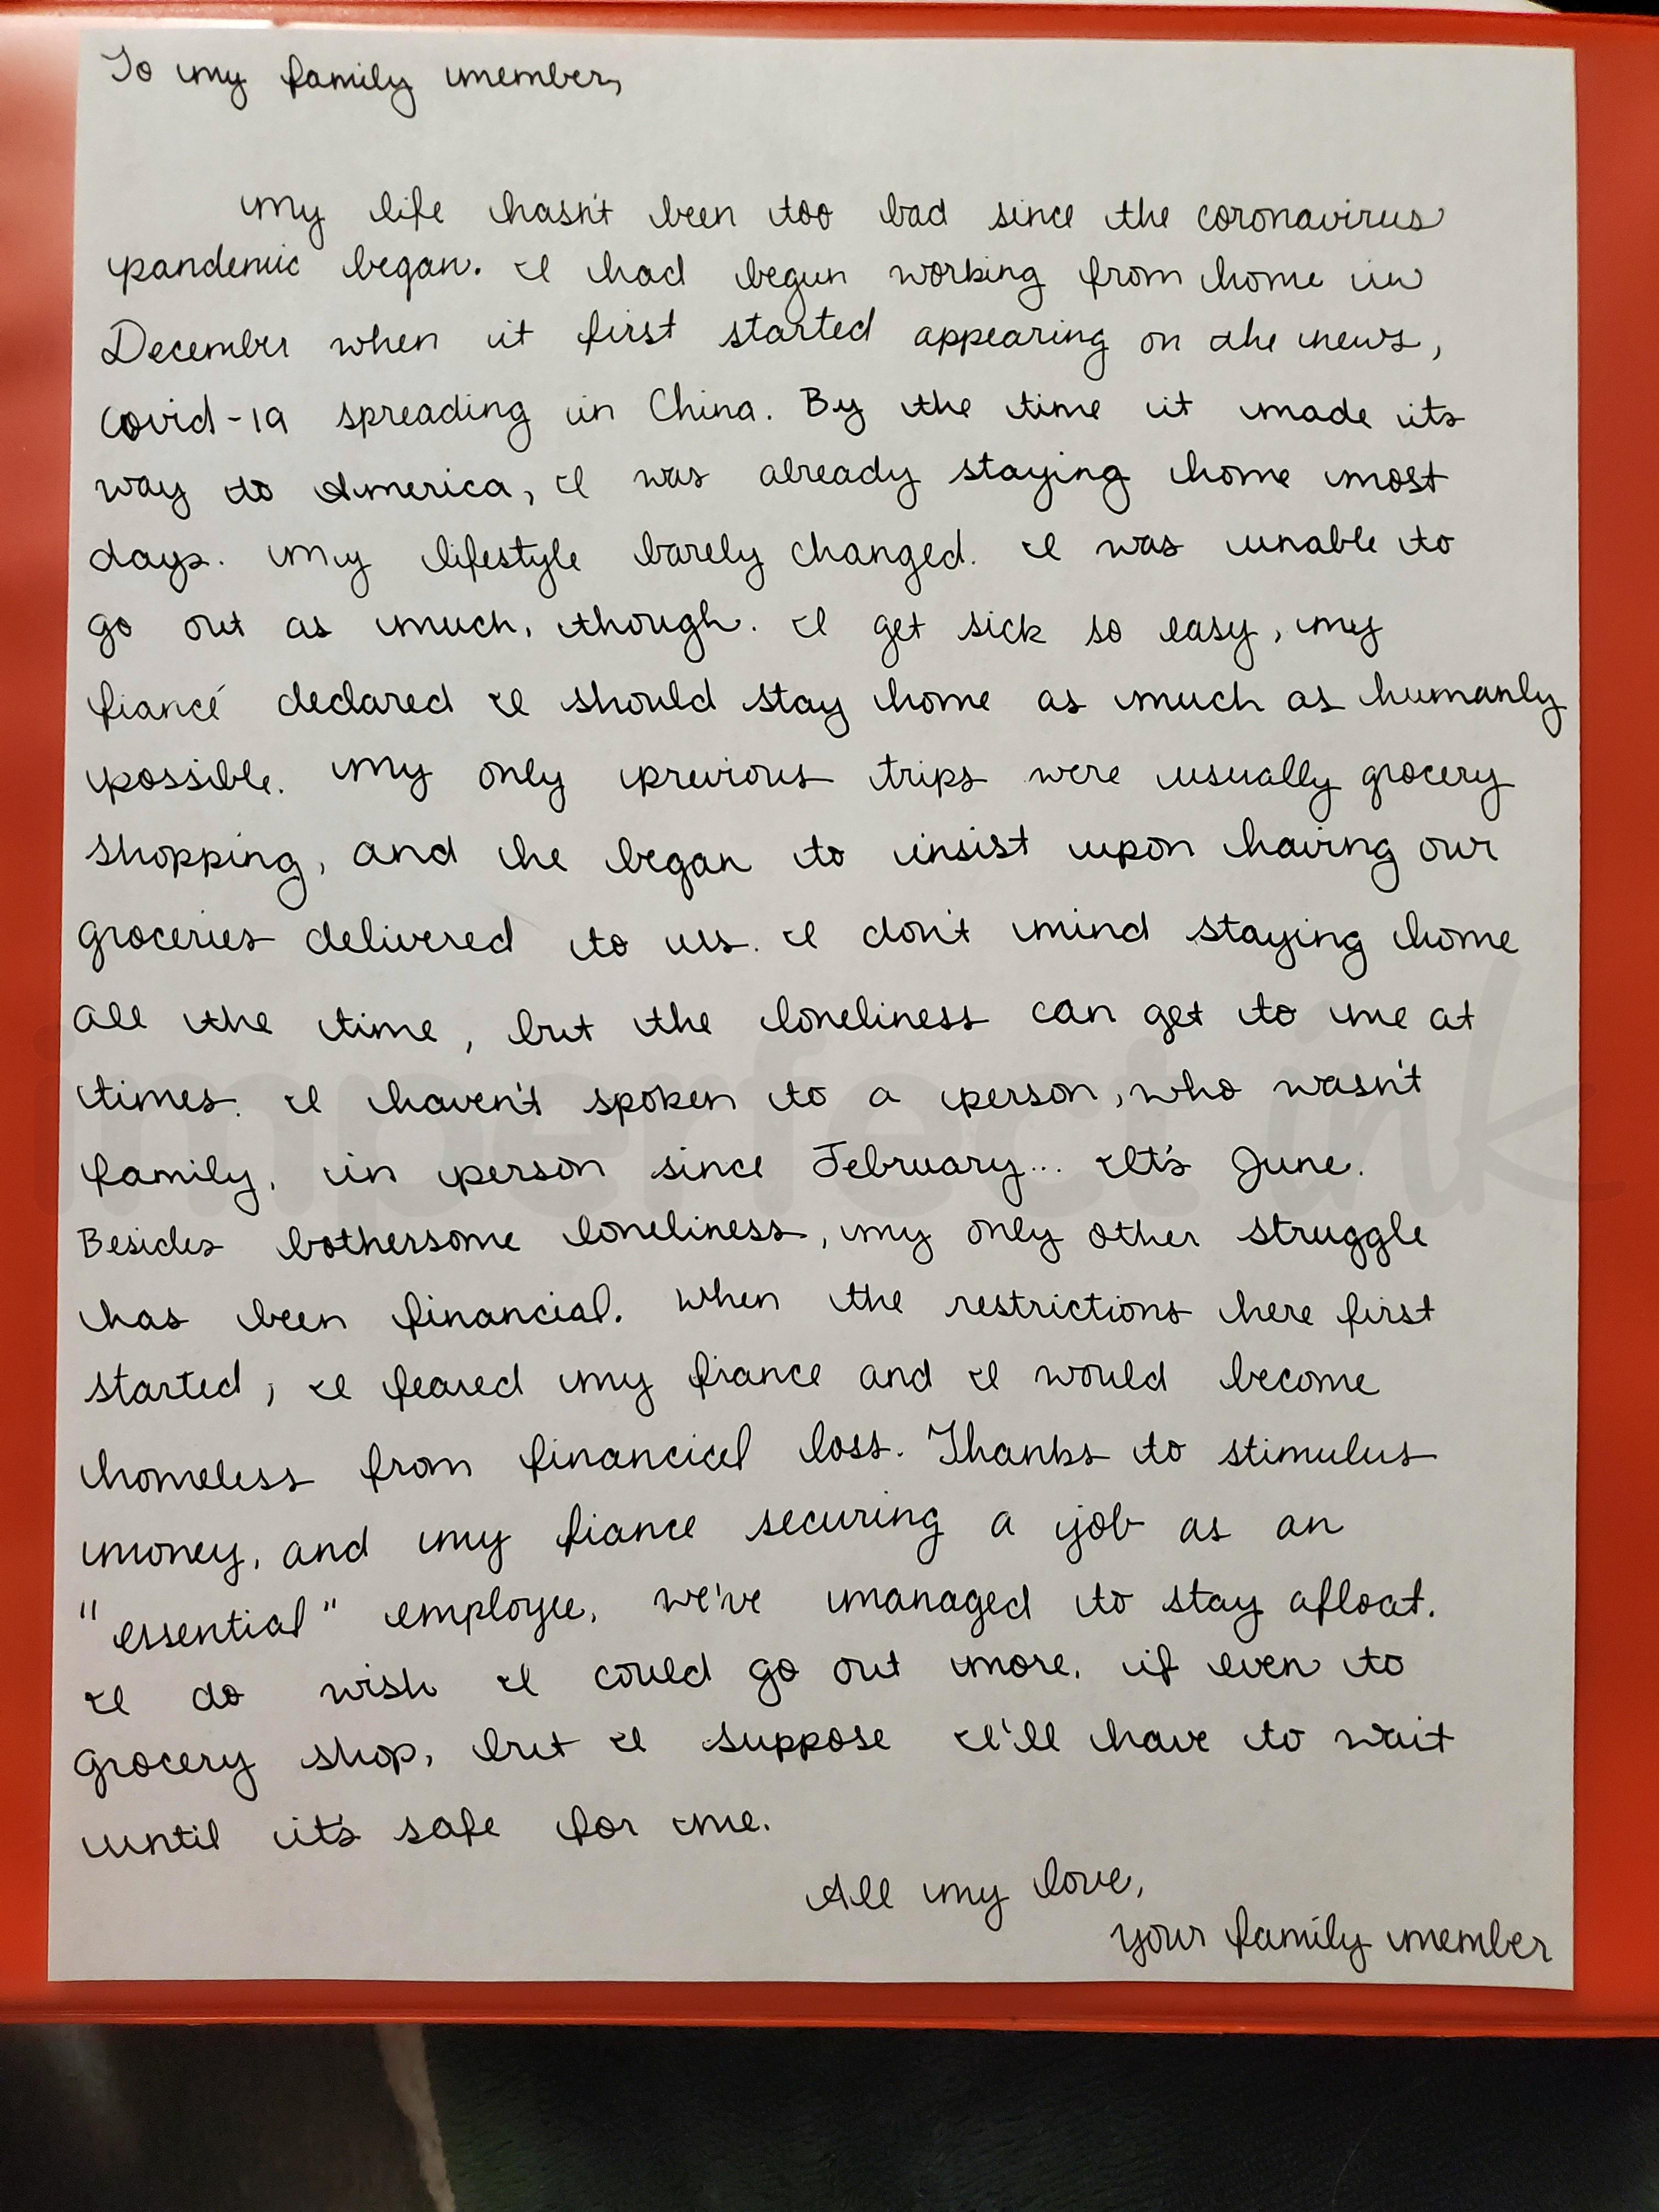 To my family member,
My life hasn't been too bad since the coronavirus
pandemic began. I had begun working from home in
December when it first started appearing on the news,
Covid-19 spreading in China. By the time it made its
way to America, I was already staying home most
days. My lifestyle barely changed. I was unable to
go out as much, though. I get sick so easy, my
fiancé declared I should stay home as much as humanly
possible. My only previous trips were usually grocery
shopping, and he began to insist upon having our
groceries delivered to us. I don't mind staying home
all the time, but the loneliness can get to me at
times. I haven't spoken to a person, who wasn't
family, in person since February... It's June.
Besides bothersome loneliness, my only other struggle
has been financial. When the restrictions here first
started, I feared my fiance and I would become
homeless from financial loss. Thanks to stimulus
money, and my fiance securing a job as an
"essential" employee, we've managed to stay afloat.
I do wish I could go out more, if even to
grocery shop, but I suppose I'll have to wait
until it's safe for me.
All my love,
your family member
imperfect ink